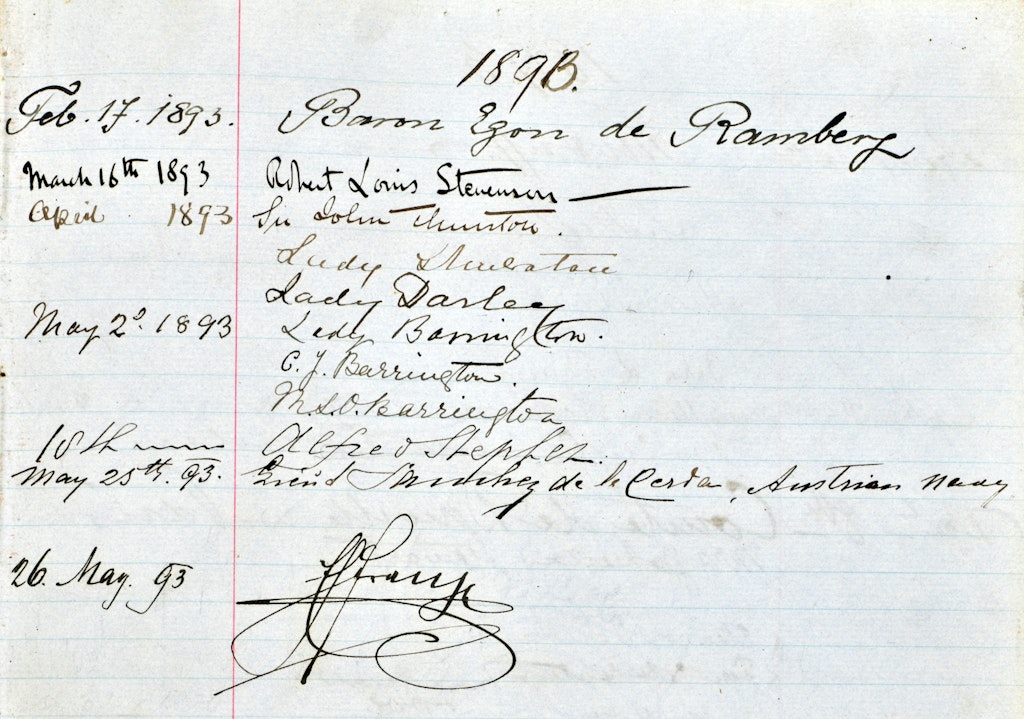 1893.
Feb. 17. 1893. Baron Egon de Ramberg
March 16th 1893 Robert Louis Stevenson
April 1893 Sir John Thurston.
Lady Thurston
Lady Darley
May 2d. 1893 Lady Barrington.
C. J. Barrington.
M.S.O. Barrington
18th Alfred Stephen.
May 25th. 93. Sanchez de la Cerda, Austrian Navy
26. May. 93